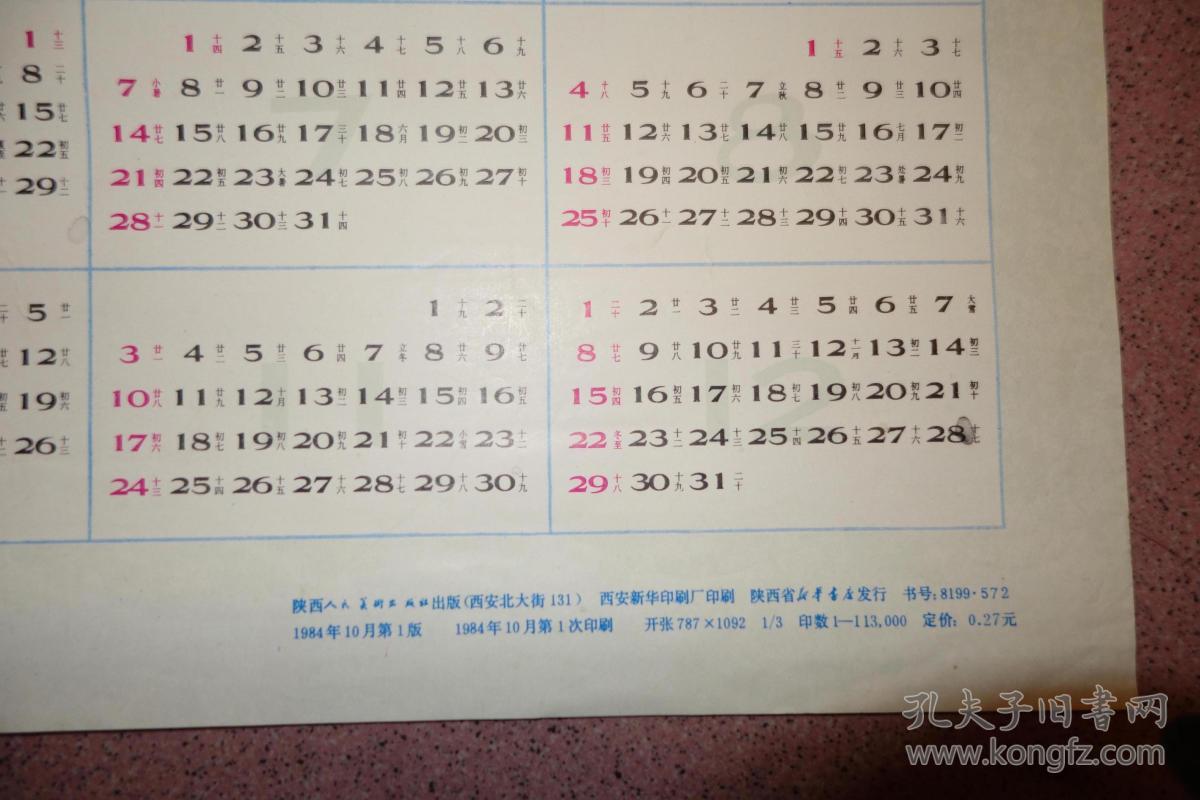 1 十三
8 二十
15 廿七
22 初五
29 十二
7
1 十四 2 十五 3 十六 4 十七 5 十八 6 十九
7 小暑 8 廿一 9 廿二 10 廿三 11 廿四 12 廿五 13 廿六
14 廿七 15 廿八 16 廿九 17 三十 18 六月 19 初二 20 初三
21 初四 22 初五 23 大暑 24 初七 25 初八 26 初九 27 初十
28 十一 29 十二 30 十三 31 十四
8
1 十五 2 十六 3 十七
4 十八 5 十九 6 二十 7 立秋 8 廿二 9 廿三 10 廿四
11 廿五 12 廿六 13 廿七 14 廿八 15 廿九 16 七月 17 初二
18 初三 19 初四 20 初五 21 初六 22 初七 23 处暑 24 初九
25 初十 26 十一 27 十二 28 十三 29 十四 30 十五 31 十六
二十 5 廿一
廿七 12 廿八
初五 19 初六
十二 26 十三
11
1 十九 2 二十
3 廿一 4 廿二 5 廿三 6 廿四 7 立冬 8 廿六 9 廿七
10 廿八 11 廿九 12 十月 13 初二 14 初三 15 初四 16 初五
17 初六 18 初七 19 初八 20 初九 21 初十 22 小雪 23 十二
24 十三 25 十四 26 十五 27 十六 28 十七 29 十八 30 十九
12
1 二十 2 廿一 3 廿二 4 廿三 5 廿四 6 廿五 7 大雪
8 廿七 9 廿八 10 廿九 11 三十 12 十一月 13 初二 14 初三
15 初四 16 初五 17 初六 18 初七 19 初八 20 初九 21 初十
22 冬至 23 十二 24 十三 25 十四 26 十五 27 十六 28 十七
29 十八 30 十九 31 二十
陕西人民美术出版社出版(西安北大街131) 西安新华印刷厂印刷 陕西省新华书店发行 书号:8199·572
1984年10月第1版 1984年10月第1次印刷 开张787×1092 1/3 印数1—113,000 定价:0.27元
孔夫子旧书网
www.kongfz.com